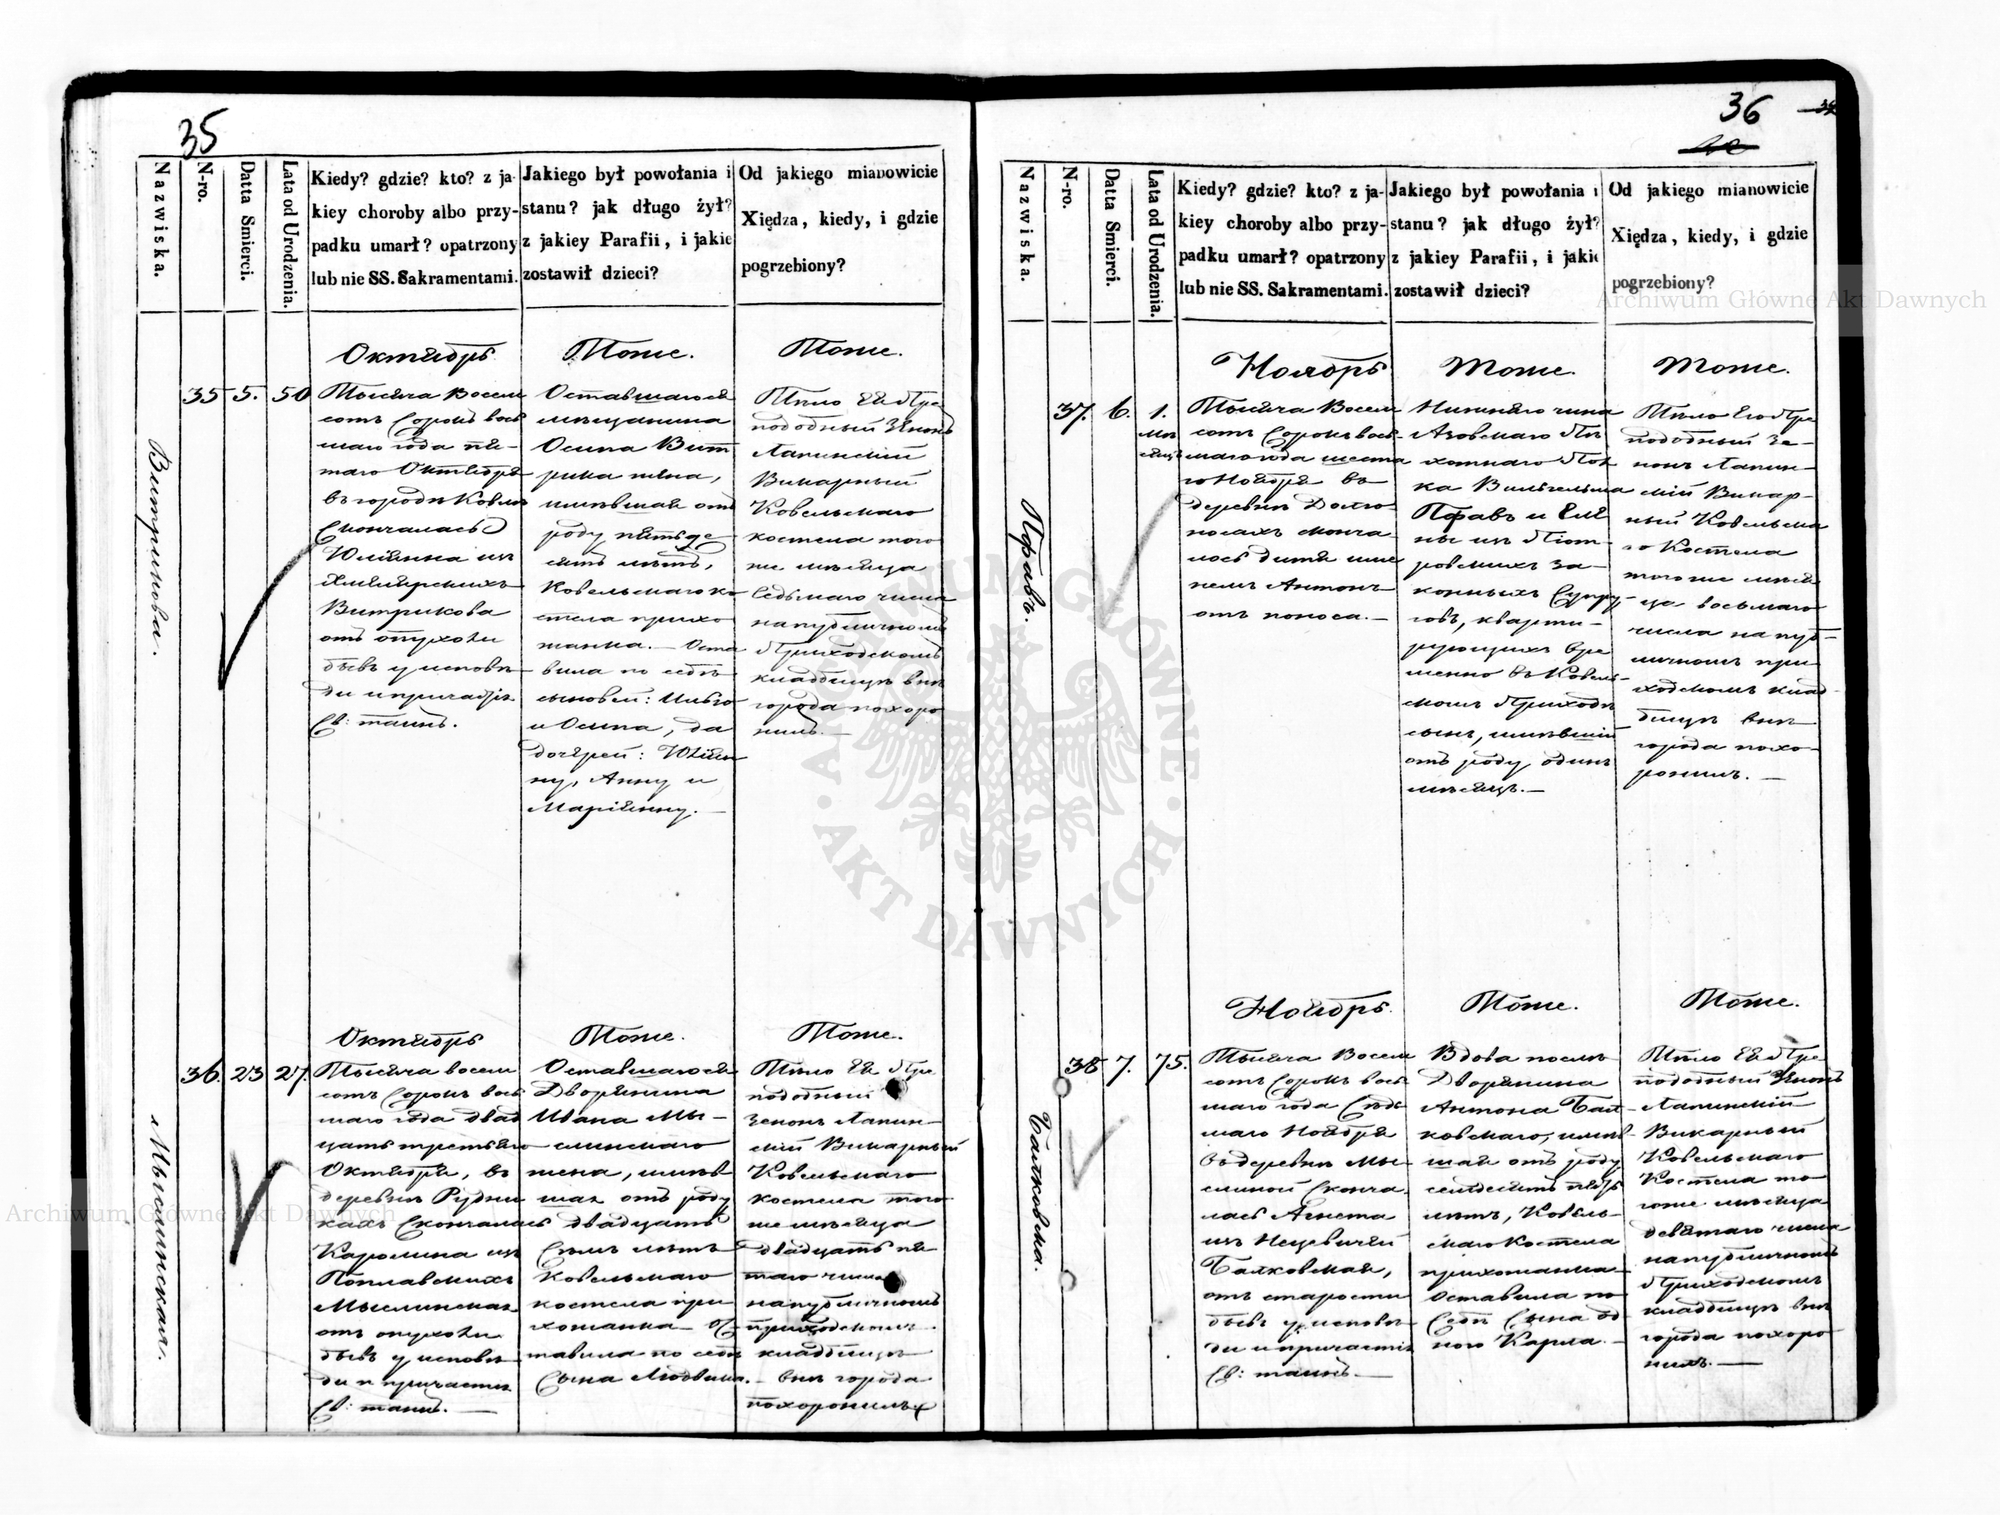 35
Nazwiska.
N-ro.
Datta Smierci.
Lata od Urodzenia.
Kiedy? gdzie? kto? z ja-
kiey choroby albo przy-
padku umarł? opatrzony
lub nie SS. Sakramentami.
Jakiego był powołania i
stanu? jak długo żył?
z jakiey Parafii, i jakie
zostawił dzieci?
Od jakiego mianowicie
Xiędza, kiedy, i gdzie
pogrzebiony?
Витрикова.
35
5.
50
Октябрь
Тысяча Восем
сотъ Сорокъ вось
маго года пя-
таго Октября
въ городѣ Ковлѣ
Скончалась
Юлiянна изъ
Витрикова
отъ опухоли
бывъ у исповѣ-
ди и причастія
Св: таинъ.
Тоже.
Оставшагося
мѣщанина
Осипа Вит
рика жена,
имѣвшая отъ
роду пятьде
сятъ лѣтъ,
Ковельскаго ко
стела прихо
жанка. — Оста
вила по себѣ
сыновей:
и Осипа, да
дочерей: Юліян
ну, Анну и
Маріянну. —
Тоже.
Тѣло Ея Пре
подобный Зенонъ
Лапинскій
Викарный
Ковельскаго
костела того
же мѣсяца
Седьмаго числа
на публичномъ
Приходскомъ
кладбищѣ внѣ
города похоро
нилъ. —
Мыслинская.
36.
23
27.
Октябрь
Тысяча восем
сотъ Сорокъ вось
маго года двад
цать третьяго
Октября, въ
деревнѣ Рудни
кахъ Скончалась
Каролина изъ
Поплавскихъ
Мыслинская
отъ опухоли
бывъ у исповѣ-
ди и причастія
Св: таинъ. —
Тоже.
Оставшагося
Дворянина
Ивана Мы-
слинскаго
жена, имѣв
шая отъ роду
двадцать
Семь лѣтъ
Ковельскаго
костела при
хожанка — Ос
тавила по себѣ
Сына Людвика.
Тоже.
Тѣло Ея Пре
подобный
Зенонъ Лапин-
скій Викарный
Ковельскаго
костела того
же мѣсяца
двадцать пя
таго числа
на публичномъ
приходскомъ
кладбищѣ
— внѣ города
похоронилъ
36
Nazwiska.
N-ro.
Data Smierci.
Lata od Urodzenia.
Kiedy? gdzie? kto? z ja-
kiey choroby albo przy-
padku umarł? opatrzony
lub nie SS. Sakramentami.
Jakiego był powołania i
stanu? jak długo żył?
z jakiey Parafii, i jakie
zostawił dzieci?
Od jakiego mianowicie
Xiędza, kiedy, i gdzie
pogrzebiony?
37.
6.
1.
мѣ
сяцъ
Ноябрь
Тысяча Восем
сотъ Сорокъ вось-
маго года шеста
го Ноября въ
деревнѣ Долго
носахъ сконча
лось дитя име
немъ Антонъ
отъ поноса. —
Тоже.
Нижняго чина
Азовскаго Пѣ
хотнаго Пол
ка Вильгельма
и Еле
ны изъ Піот
ровскихъ За-
конныхъ Супру
говъ, кварти-
рующихъ вре
менно въ Ковель-
скомъ Приходѣ
сынъ, имѣвшій
отъ роду одинъ
мѣсяцъ. —
Тоже.
Тѣло Его Пре
подобный Зе-
нонъ Лапин-
скій Викар-
ный Ковельска
го Костела
того же мѣся
ца восьмаго
числа на пуб-
личномъ при
ходскомъ клад-
бищѣ внѣ
города похо-
ронилъ. —
Балковска.
38
7.
75.
Ноябрь.
Тысяча Восем
сотъ Сорокъ вось
маго года Седь
маго Ноября
въ деревнѣ Мы-
слиной Сконча
лась Агнета
изъ Нецевичей
Балковская,
отъ старости
бывъ у исповѣ
ди и причастія
Св: таинъ. —
Тоже.
Вдова послѣ
Дворянина
Антона Бал-
ковскаго, имѣв-
шая отъ роду
семдесятъ пять
лѣтъ, Ковель-
скаго Костела
прихожанка
Оставила по
Себѣ Сына од
ного Карла. —
Тоже.
Тѣло Ея Пре
подобный Зенонъ
Лапинскій
Викарный
Ковельскаго
Костела то
гоже мѣсяца
девятаго числа
на публичномъ
Приходскомъ
кладбищѣ внѣ
города похоро
нилъ. —
Archiwum Główne Akt Dawnych
Archiwum Główne Akt Dawnych
ARCHIWUM GŁÓWNE · AKT DAWNYCH ·